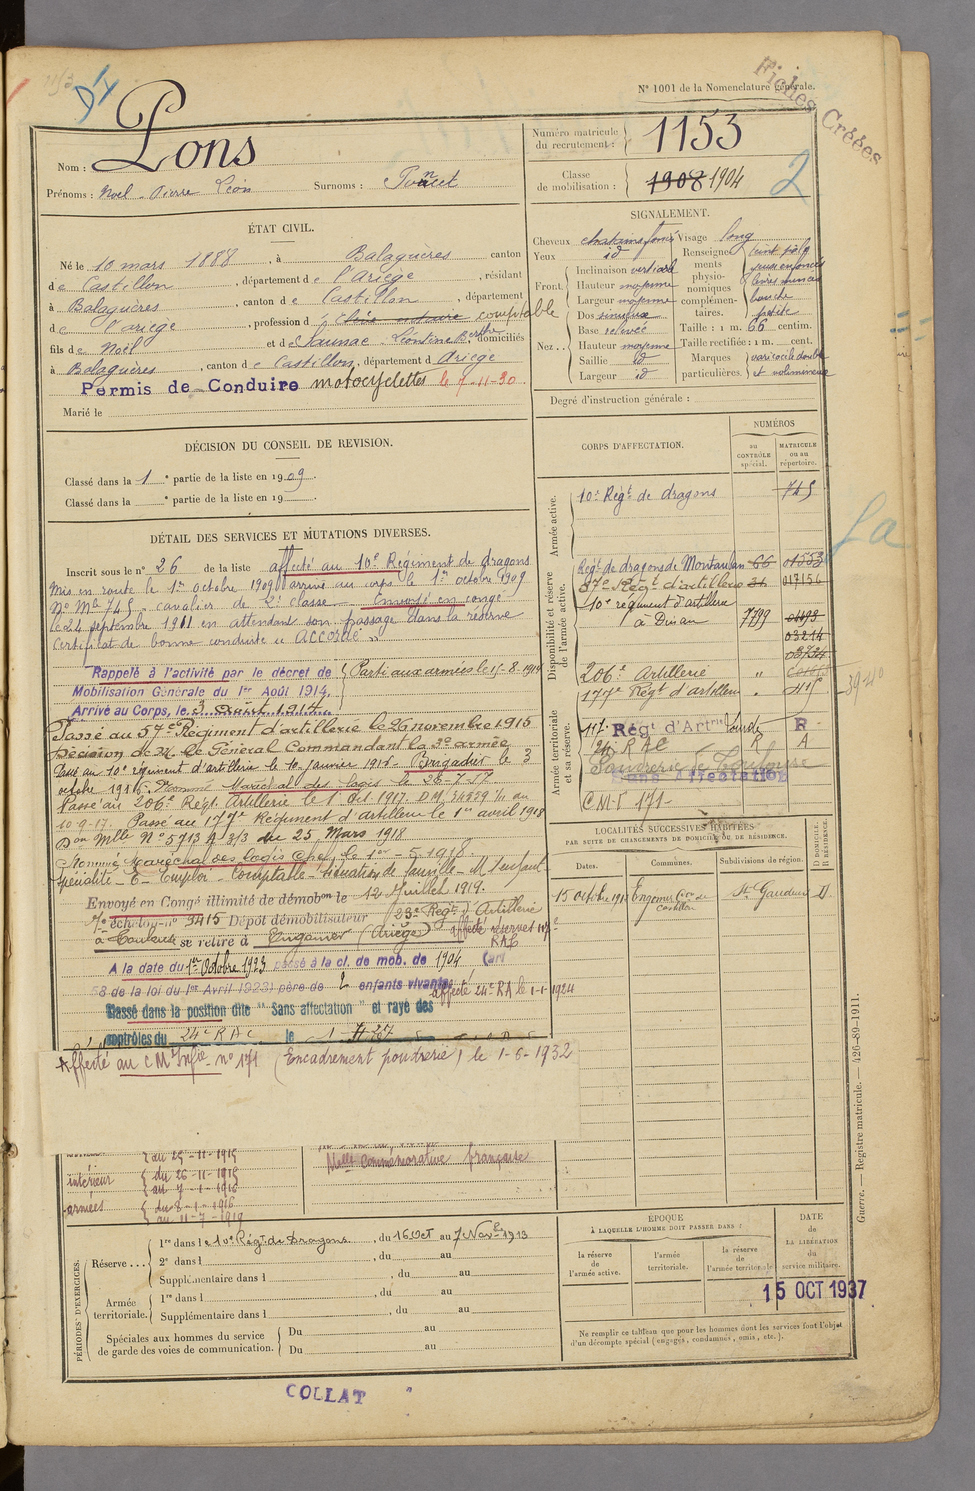 N° 1001 de la Nomenclature générale.
Fiches Créées
Nom : Pons
Prénoms : Noel - Pierre Léon Surnoms :
Numéro matricule du recrutement : 1153
Classe de mobilisation : 1908 1904
2
ÉTAT CIVIL.
Né le 10 mars 1888, à Balaguères canton
de Castillon, département de l'Ariège, résidant
à Balaguères, canton de Castillon, département
de l'ariège, profession d comptable
fils de Noël et de Saunac Léontine Berthe, domiciliés
à Balaguères, canton de Castillon, département d Ariège
Permis de Conduire motocyclettes le 7-11-30
Marié le
SIGNALEMENT.
Cheveux chatains foncés Visage long
Yeux id
Renseignements physionomiques complémentaires. teint pâle yeux enfoncés lèvres minces bouche petite
Front. Inclinaison vertical
Hauteur moyenne
Largeur moyenne
Nez.. Dos sinueux
Base relevée
Hauteur moyenne
Saillie id
Largeur id
Taille : 1 m. 66 centim.
Taille rectifiée : 1 m. cent.
Marques particulières. varicocèle double et volumineux
Degré d'instruction générale :
DÉCISION DU CONSEIL DE REVISION.
Classé dans la 1e partie de la liste en 1909.
Classé dans la e partie de la liste en 19 .
DÉTAIL DES SERVICES ET MUTATIONS DIVERSES.
Inscrit sous le n° 26 de la liste affecté au 10e Régiment de dragons
Mis en route le 1er octobre 1909 arrivé au corps le 1er octobre 1909
N° Mle 745, cavalier de 2e classe - Envoyé en congé
le 24 septembre 1911 en attendant son passage dans la réserve
Certificat de bonne conduite "ACCORDÉ"
Rappelé à l'activité par le décret de Parti aux armées le 15-8-1914
Mobilisation Générale du 1er Août 1914.
Arrivé au Corps, le 3 Août 1914
Passé au 57e Régiment d'artillerie le 26 novembre 1916
Décision de M. le Général Commandant la 2e armée
Passé au 10e régiment d'artillerie le 10 Janvier 1916 - Brigadier le 3
octobre 1916. Nommé Maréchal des logis le 28-7-17
Passé au 206e Régt. Artillerie le 1 Oct 1917. D.M. 34559 1/11 du
10-9-17. Passé au 177e Régiment d'artillerie le 1er avril 1918
Don Mlle N° 5713 3/3 du 25 Mars 1918
Nommé Maréchal des logis chef le 1er - 5 1918.
Spécialité - E - Emploi - Comptable
Envoyé en Congé illimité de démobon le 12 Juillet 1919.
7e échelon n° 3415 Dépôt démobilisateur 23e Régt d'Artillerie
à Toulouse se retire à Engomer (Ariège) affecté réserves 117e RAL
A la date du 1er Octobre 1923 passé à la cl. de mob. de 1904 (art
58 de la loi du 1er Avril 1923) père de 2 enfants vivants
affecté 24e RA le 1-1-1924
Classé dans la position dite "Sans affectation" et rayé des
contrôles du 24e RAC le 1-
Affecté au CM Infie n° 171 (Encadrement poudrerie) le 1-6-1932
au 25-11-1915
intérieur du 26-11-1915
au 7-1-1916
armées du 8-1-1916
au 11-7-1919
Melle Commémorative française
CORPS D'AFFECTATION.
NUMÉROS
au CONTRÔLE spécial.
MATRICULE ou au répertoire.
Armée active.
10e Régt de dragons 745
Disponibilité et réserve de l'armée active.
Régt de dragons de Montauban 66 01553
57e Régt d'artillerie 31 017156
10e régiment d'artillerie
à Dinan 7799
03214
206e Artillerie "
177e Régt d'artillerie " 415
Armée territoriale et sa réserve.
117e Régt d'Artrie lourde R
24e RAC R A
Poudrerie de Toulouse
Sans Affectation
CM-I 171-
LOCALITÉS SUCCESSIVES HABITÉES
PAR SUITE DE CHANGEMENTS DE DOMICILE OU DE RÉSIDENCE.
Dates. Communes. Subdivisions de région. D DOMICILE. R RÉSIDENCE.
15 octobre 1912 Engomer Con de Castillon St. Gaudens D
PÉRIODES D'EXERCICES.
Réserve... 1re dans le 10e Régt de Dragons, du 16 Oct au 7 Nove 1913
2e dans l , du au
Supplémentaire dans l , du au
Armée territoriale. 1re dans l , du au
Supplémentaire dans l , du au
Spéciales aux hommes du service de garde des voies de communication. Du au
Du au
EPOQUE
À LAQUELLE L'HOMME DOIT PASSER DANS :
la réserve de l'armée active.
l'armée territoriale.
la réserve de l'armée territoriale.
DATE de LA LIBÉRATION du service militaire.
15 OCT 1937
Ne remplir ce tableau que pour les hommes dont les services font l'objet
d'un décompte spécial (engagés, condamnés, omis, etc.).
Guerre. — Registre matricule. — 426-89-1911.
COLLAT